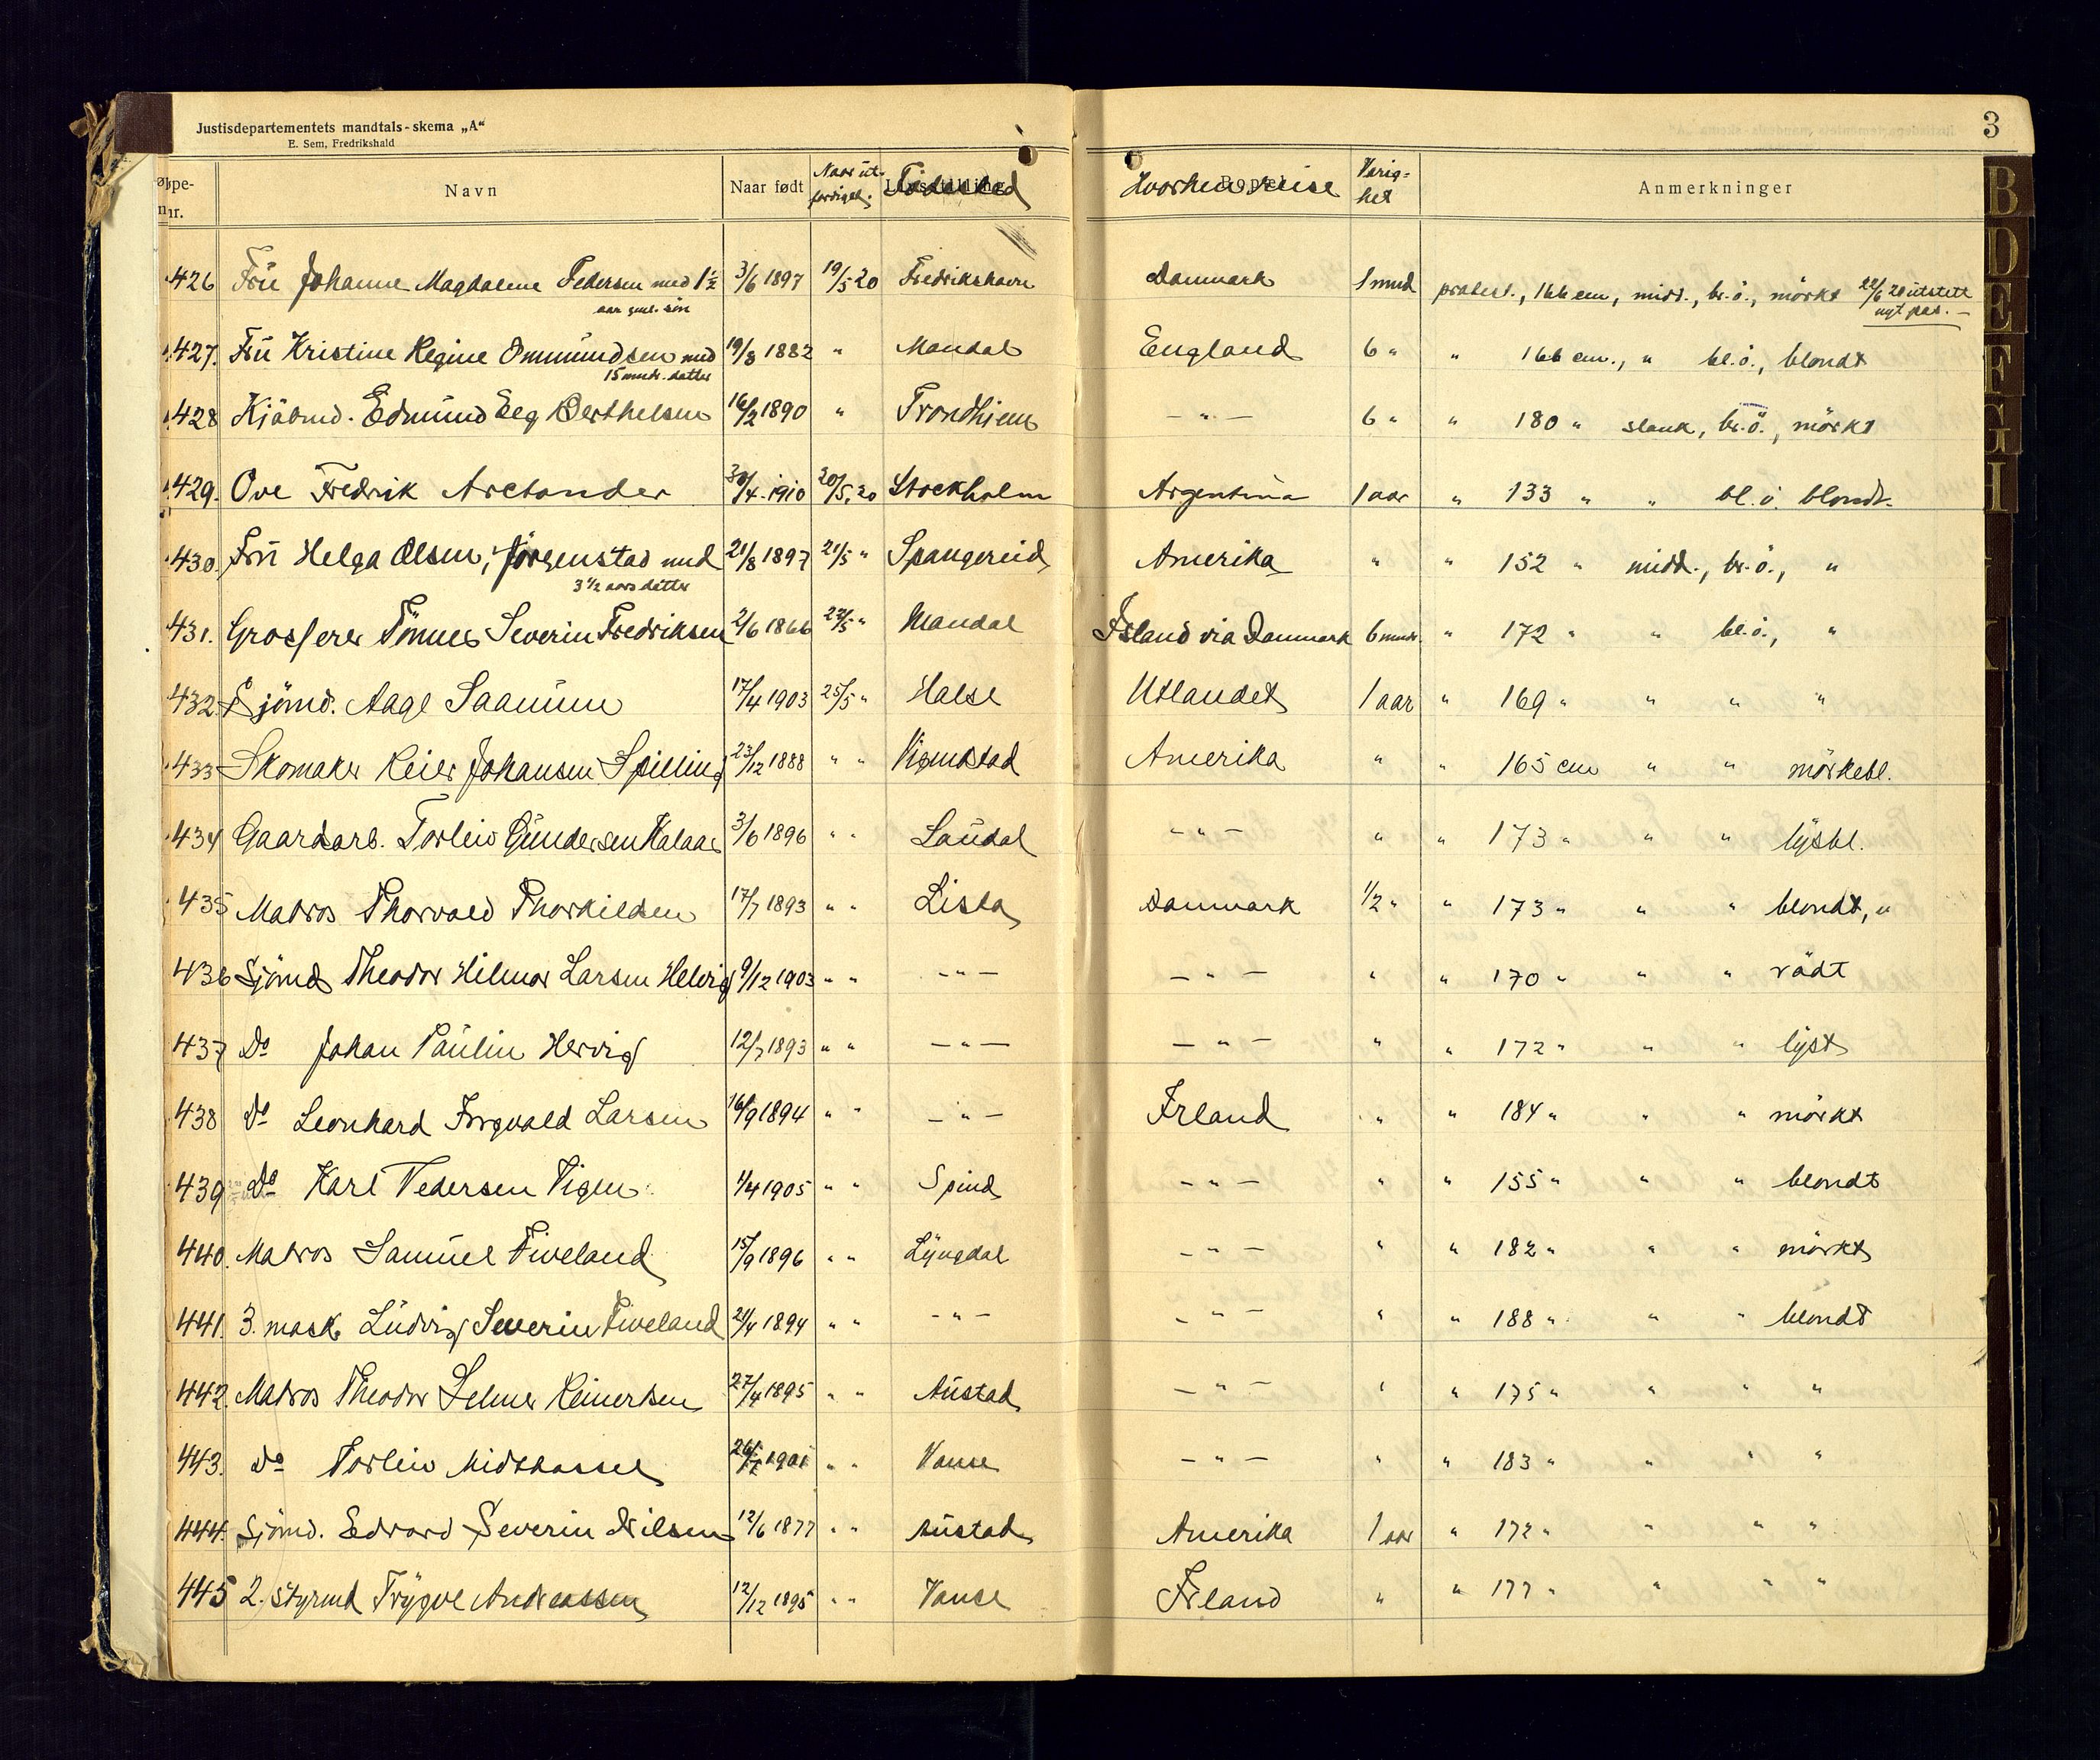 Justisdepartementets mandtals-skema „A“
E. Sem, Fredrikshald
3
øpe-nr. Navn Naar født Naar utfærdiget. Fødested Hvorhen reise Varighet Anmerkninger
426 Frü Johanne Magdalene Pedersen med 1½ 3/6 1897 19/5 20 Fredrikshavn Danmark 1 mnd protest., 166 cm, midd., br.ö., mörkt 22/6 20 utstett
aar gml. sön nyt pas. —
427. Frü Kristine Regine Ommündsen med 19/8 1882 " Mandal England 6 " " 166 cm., " bl.ö., blondt
15 mndr. datter
428 Kjöbmd. Edmünd Eeg Berthelsen 16/2 1890 " Trondhjem — " — 6 " " 180 " slank, br.ö., mörkt
429. Ove Fredrik Arctander 30/4 1910 20/5, 20 Stockholm Argentina 1 aar " 133 " " bl.ö. blondt
430. Frü Helga Olsen, Jörgenstad med 21/8 1897 21/5 " Spangereid Amerika " " 152 " midd., br.ö., "
3½ aars datter
431. Grosserer Tönnes Severin Fredriksen 2/6 1866 22/5 " Mandal Island via Danmark 6 mndr. " 172 " " bl.ö., "
432. Sjömd. Aage Saanüm 17/4 1903 25/5 " Halse Utlandet 1 aar " 169 " " " "
433 Skomaker Reier Johansen Spilling 23/12 1888 " " Vigmostad Amerika " " 165 cm " " mörkebl.
434 Gaardarb. Torleiv Gündersen Kalaas 3/6 1896 " " Laüdal — " — " " 173 " " " lysbl.
435 Matros Thorvald Thorkildsen 17/7 1893 " " Lista Danmark 1/2 " " 173 " " " blondt, "
436 Sjömd Theodor Hilmar Larsen Helvig 9/12 1903 " " — " — — " — " " 170 " " " rödt
437 Do Johan Paülin Hervig 12/7 1893 " " — " — — " — " " 172 " " " lyst
438 Do Leonhard Ingvald Larsen 16/9 1894 " " — " — Irland " " 184 " " " mörkt
439 Do Karl Pedersen Vigen 1/4 1905 " " Spind — " — " " 155 " " " blondt
440. Matros Samüel Fiveland 15/9 1896 " " Lyngdal — " — " " 182 " " " mörkt
441. 3. mask. Lüdvig Severin Fiveland 21/4 1894 " " — " — — " — " " 188 " " " blondt
442. Matros Theodor Selmer Reinertsen 27/4 1895 " " Aüstad — " — " " 175 " " " "
443. Do Torleiv Midthassel 1901 " " Vanse — " — " " 183 " " " "
444. Sjömd. Edvard Severin Nilsen 12/6 1877 " " Aüstad Amerika 1 aar " 172 " " " "
445 2. styrmd Trygve Andreassen 12/12 1895 " " Vanse Irland " " 177 " " " "
B
D
E
F
G
H